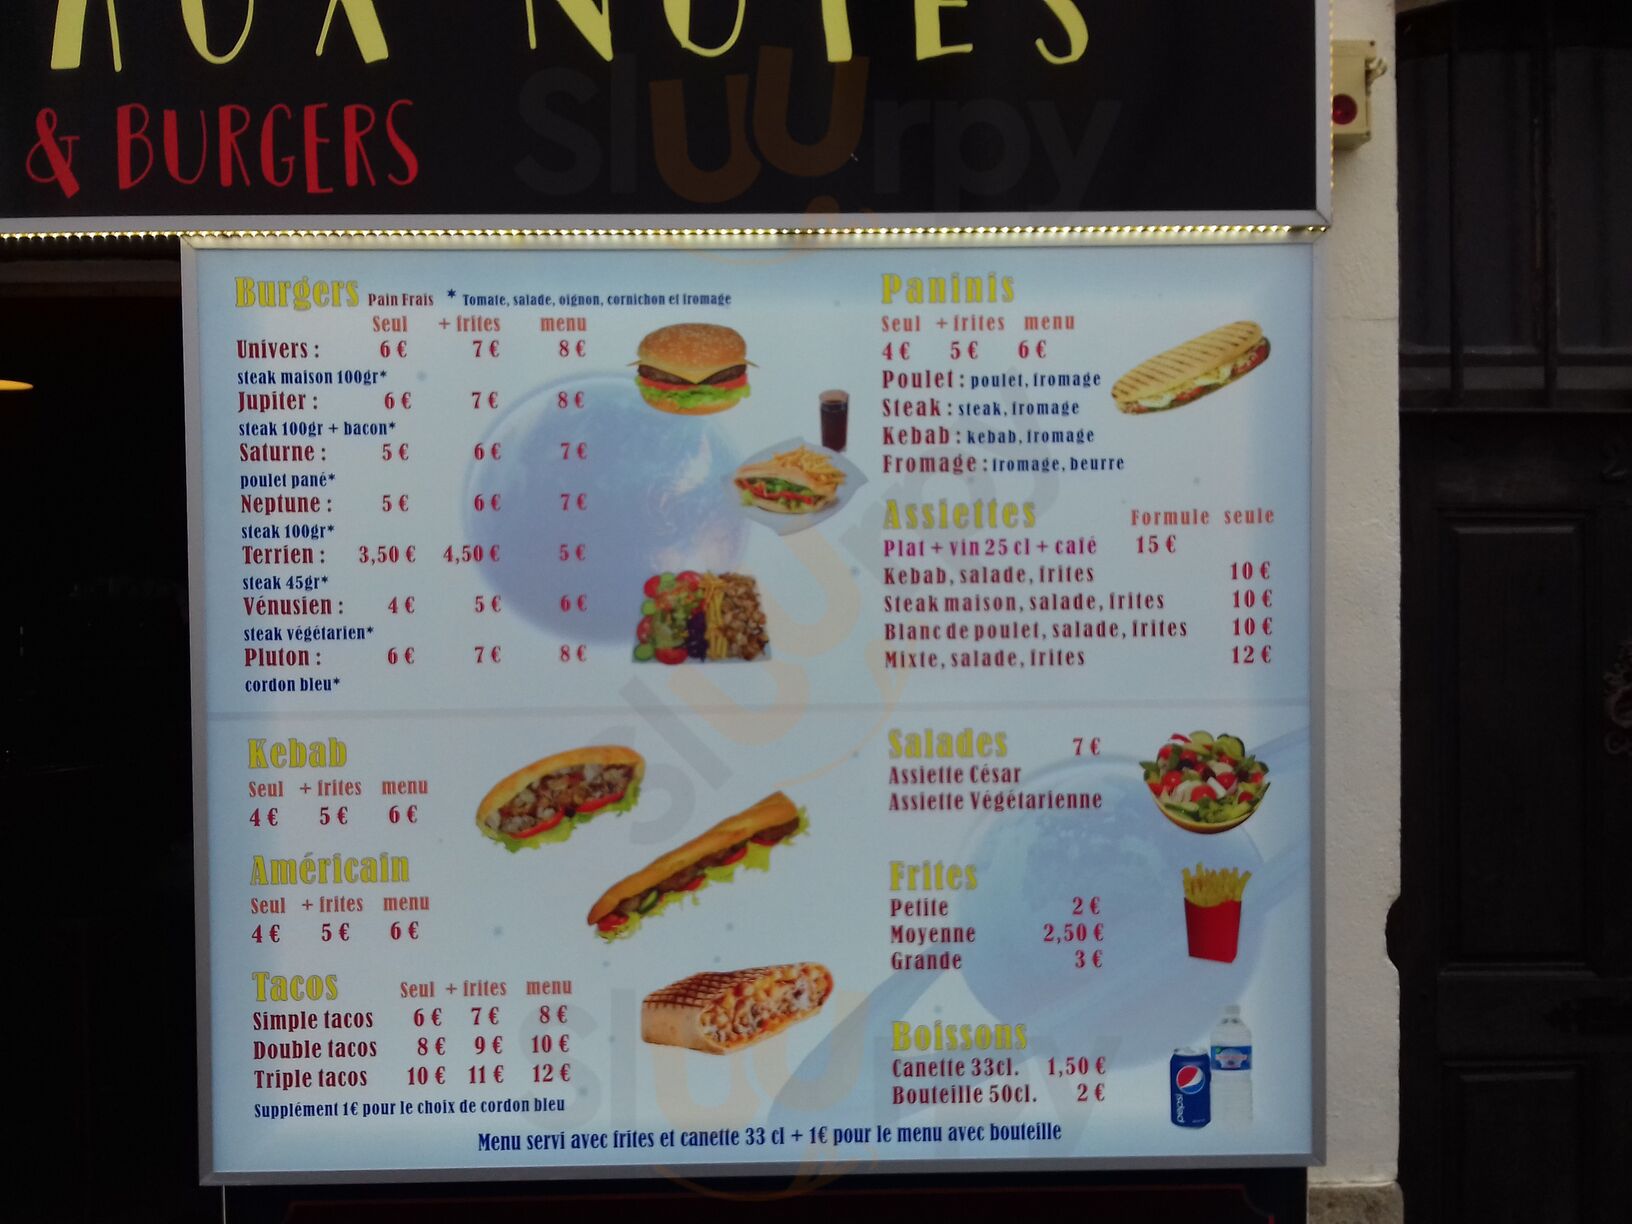 AUX NOTES
& BURGERS
Burgers Pain Frais * Tomate, salade, oignon, cornichon et fromage
Seul + frites menu
Univers : 6 € 7 € 8 €
steak maison 100gr*
Jupiter : 6 € 7 € 8 €
steak 100gr + bacon*
Saturne : 5 € 6 € 7 €
poulet pané*
Neptune : 5 € 6 € 7 €
steak 100gr*
Terrien : 3,50 € 4,50 € 5 €
steak 45gr*
Vénusien : 4 € 5 € 6 €
steak végétarien*
Pluton : 6 € 7 € 8 €
cordon bleu*
Kebab
Seul + frites menu
4 € 5 € 6 €
Américain
Seul + frites menu
4 € 5 € 6 €
Tacos Seul + frites menu
Simple tacos 6 € 7 € 8 €
Double tacos 8 € 9 € 10 €
Triple tacos 10 € 11 € 12 €
Supplément 1€ pour le choix de cordon bleu
Paninis
Seul + frites menu
4 € 5 € 6 €
Poulet : poulet, fromage
Steak : steak, fromage
Kebab : kebab, fromage
Fromage : fromage, beurre
Assiettes Formule seule
Plat + vin 25 cl + café 15 €
Kebab, salade, frites 10 €
Steak maison, salade, frites 10 €
Blanc de poulet, salade, frites 10 €
Mixte, salade, frites 12 €
Salades 7 €
Assiette César
Assiette Végétarienne
Frites
Petite 2 €
Moyenne 2,50 €
Grande 3 €
Boissons
Canette 33cl. 1,50 €
Bouteille 50cl. 2 €
pepsi
Menu servi avec frites et canette 33 cl + 1€ pour le menu avec bouteille
Sluurpy
sluurpy
sluurpy